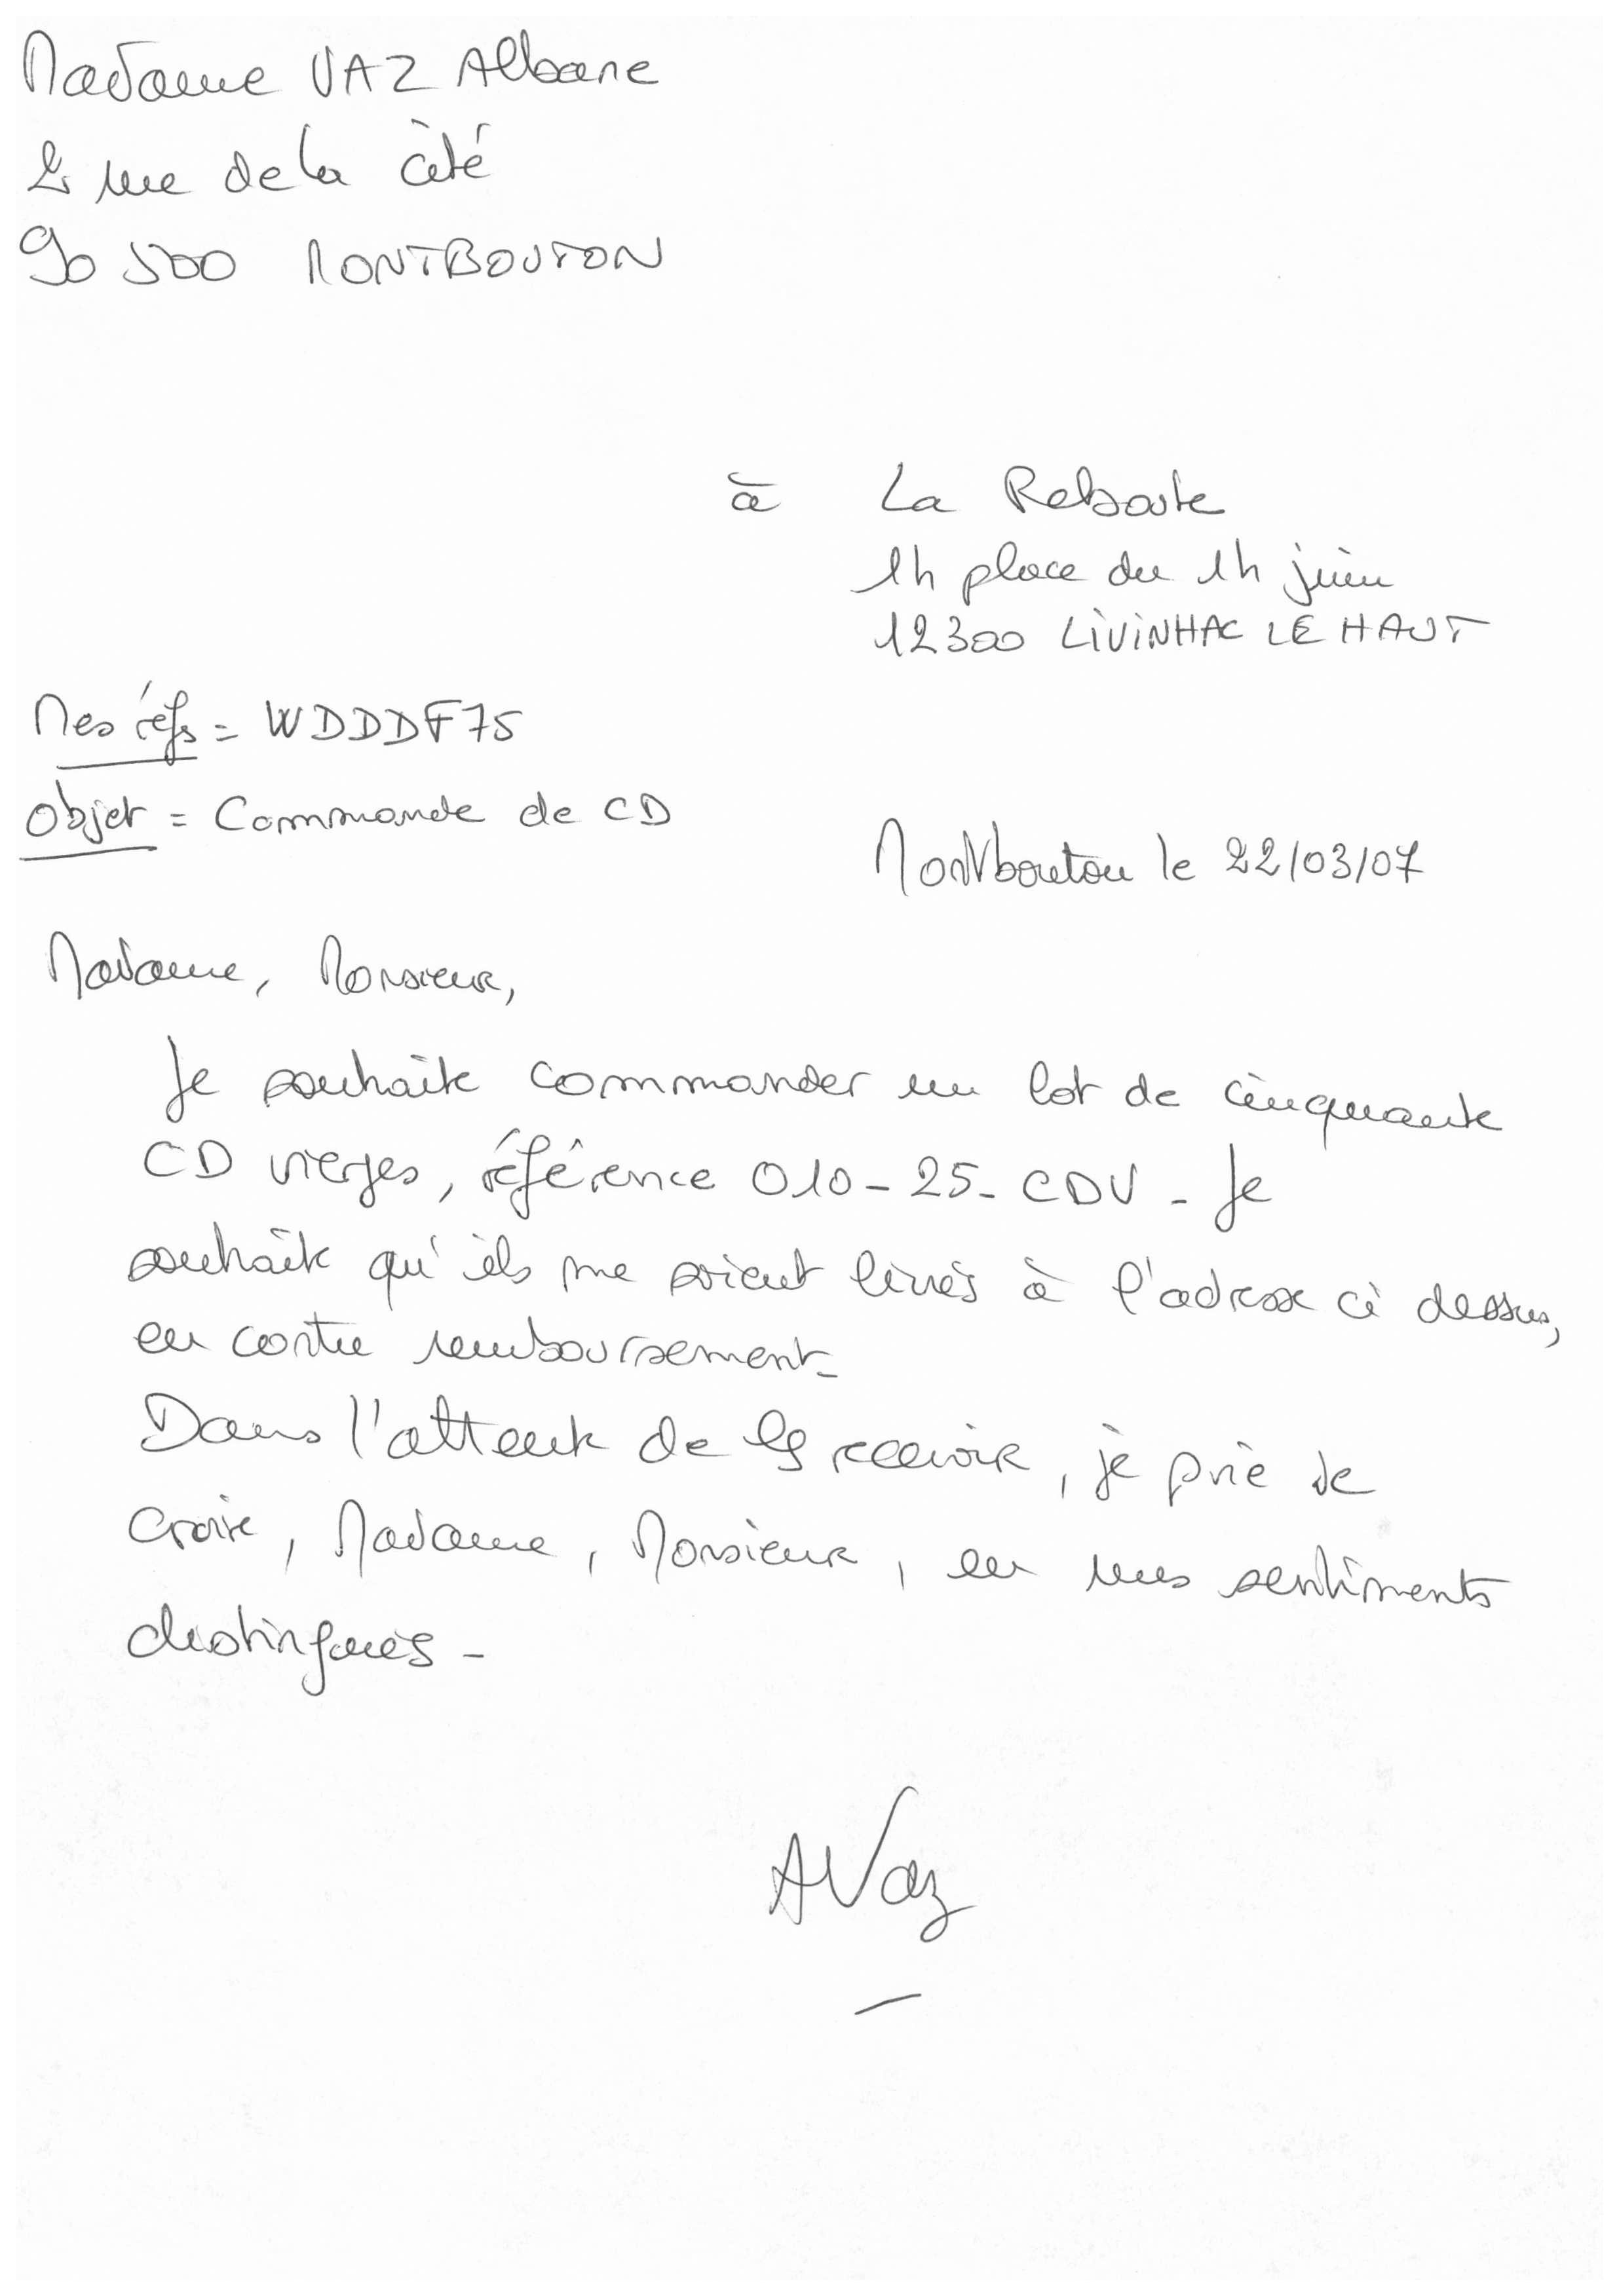 Madame VAZ Albane
2 rue de la cité
90 500 MONTBOUTON
à La Reboute
14 place du 14 juin
12300 LIVINHAC LE HAUT
Mes réfs = WDDDF75
Objet = Commande de CD
Montbouton le 22/03/07
Madame, Monsieur,
Je souhaite commander un lot de cinquante
CD vierges, référence 010-25-CDV. Je
souhaite qu'ils me soient livrés à l'adresse ci dessus,
en contre remboursement.
Dans l'attente de les recevoir, je prie de
croire, Madame, Monsieur, en mes sentiments
distingués.
AVaz